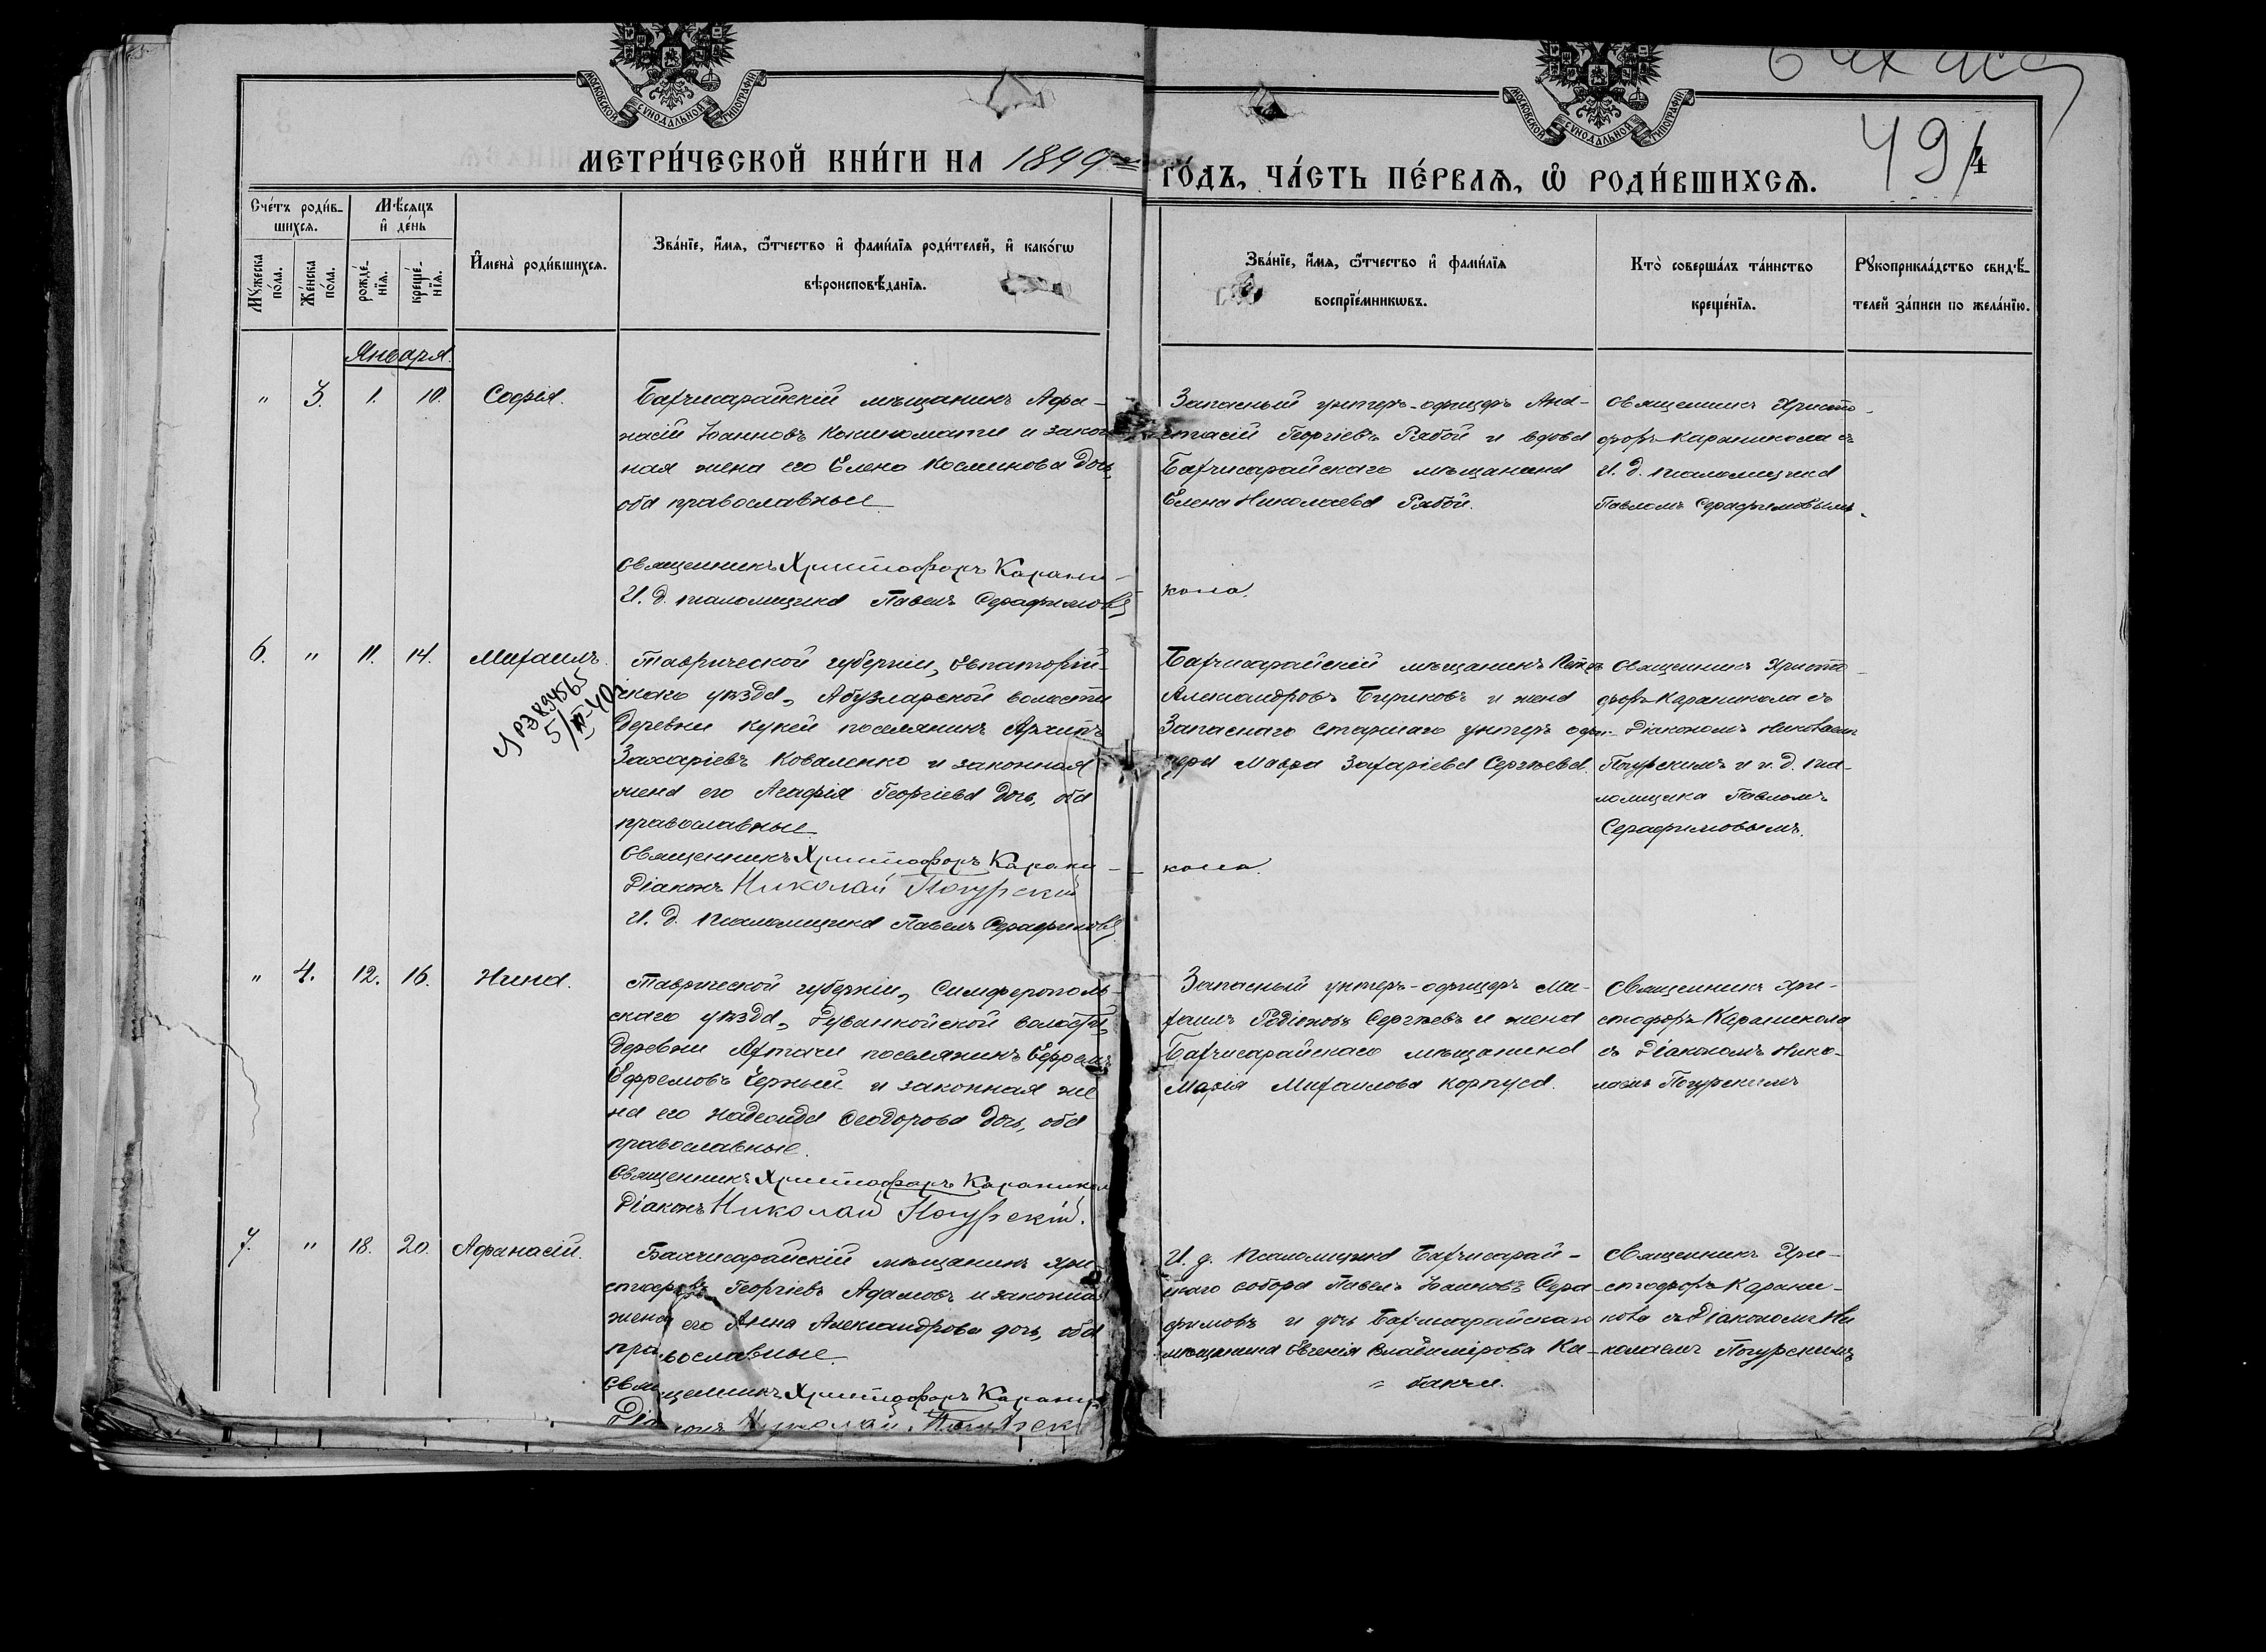 МОСКОВСКОЙ СѴНОДАЛЬНОЙ ТИПОГРАФІИ
МЕТРИ́ЧЕСКОЙ КНИ́ГИ НА 1899 ГО́ДЪ, ЧА́СТЬ ПЕ́РВАѦ, Ѡ РОДИ́ВШИХСѦ.
МОСКОВСКОЙ СѴНОДАЛЬНОЙ ТИПОГРАФІИ
494
Сче́тъ роди́в-
шихся.
Мѣ́сяцъ
и҆ де́нь
Му́жеска
по́ла.
Же́нска
по́ла.
рожде́-
нїя.
креще́-
нїя.
И҆мена̀ роди́вшихся.
Зва́нїе, и҆́мя, ѻ҆́тчество и҆ фами́лїя роди́телей, и҆ како́гѡ
вѣроисповѣ́данїя.
Зва́нїе, и҆́мя, ѻ҆́тчество и҆ фами́лїя
воспрїе́мникѡвъ.
Кто̀ соверша́лъ та́инство
креще́нїя.
Рꙋкоприкла́дство свидѣ́-
телей за́писи по жела́нїю.
Января.
" 3. 1. 10. Софія.
Бахчисарайскій мѣщанинъ Афа-
насій Іоанновъ Кокиномати и закон
ная жена его Елена Косминова дочь,
оба православные
Священникъ Христофоръ Карани-
И. д. псаломщика Павелъ Серафимовъ
Запасный унтеръ-офицеръ Ана-
стасій Георгіевъ Рябой и вдова
Бахчисарайскаго мѣщанина
Елена Николаева Рябой.
кола.
Священникъ Христо-
форъ Караникола съ
И. д. псаломщика
Павломъ Серафимовымъ.
6. " 11. 14. Михаилъ.
Таврической губерніи, Евпаторій-
скаго уѣзда, Абузларской волости
деревни Кукей поселянинъ Архипъ
Захаріевъ Коваленко и законная
жена его Агафія Георгіева дочь, оба
православные
Священникъ Христофоръ Карани-
Діаконъ Николай Погурскій
И. д. псаломщика Павелъ Серафимовъ
Бахчисарайскій мѣщанинъ Петръ
Александровъ Бириковъ и жена
Запаснаго старшаго унтеръ офи-
цера Мавра Захаріева Сергѣева.
кола.
Священникъ Христо-
форъ Караникола съ
Діакономъ Николаемъ
Погурскимъ и и. д. пса-
ломщика Павломъ
Серафимовымъ.
" 4. 12. 16. Нина.
Таврической губерніи, Симферополь-
скаго уѣзда, волости,
деревни Ахтачи поселянинъ Ефремъ
Ефремовъ Черный и законная же
на его Надежда Феодорова дочь, оба
православные.
Священникъ Христофоръ Караникол
Діаконъ Николай Погурскій.
Запасный унтеръ-офицеръ Ми-
хаилъ Родіоновъ Сергѣевъ и жена
Бахчисарайскаго мѣщанина
Марія Михаилова Корпуса.
Священникъ Хри-
стофоръ Караникола
съ Діакономъ Нико-
лаемъ Погурскимъ
7. " 18. 20. Афанасій.
Бахчисарайскій мѣщанинъ Хри
стофоръ Георгіевъ Адамовъ и законная
жена его Анна Александрова дочь, оба
православные.
Священникъ Христофоръ Карани
Діаконъ Николай Погурск
И. д. псаломщика Бахчисарай-
скаго собора Павелъ Іоанновъ Сера-
фимовъ и дочь Бахчисарайскаго
мѣщанина Евгенія Владимірова Ка-
Священникъ Хри-
стофоръ Карани-
кола съ Діакономъ Ни
колаемъ Погурскимъ